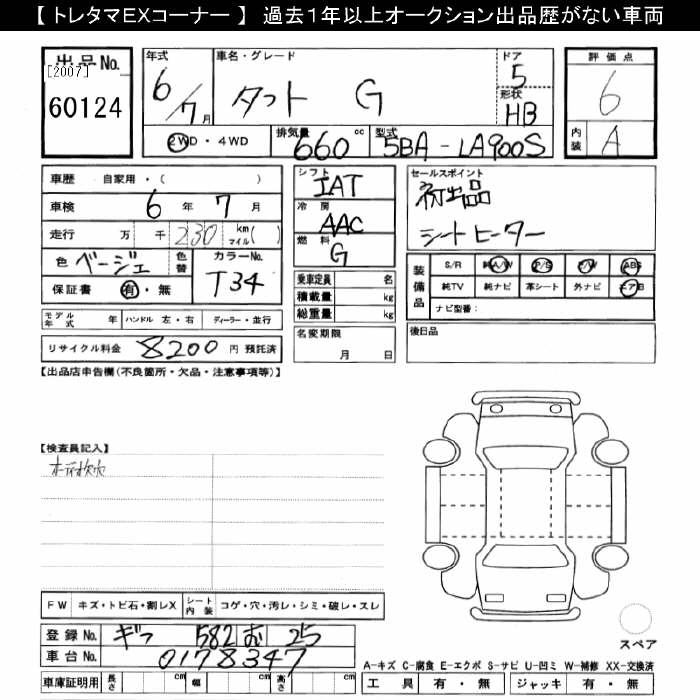 【 トレタマEXコーナー 】 過去1年以上オークション出品歴がない車両
出品No.
[2007]
60124
年式
6/7月
車名・グレード
タフト G
ドア
5
形状
HB
評価点
6
内装
A
2WD・4WD
排気量
660 cc
型式
5BA-LA900S
車歴 自家用・( )
車検 6年 7月
走行 万 千 230 km マイル( )
色 ベージュ 色替
カラーNo.
T34
保証書 有・無
モデル年式 年 ハンドル 左・右 ディーラー・並行
リサイクル料金 8200 円 預託済
シフト
IAT
冷房
AAC
燃料
G
乗車定員 名
積載量 kg
総重量 kg
名変期限
月 日
セールスポイント
初出品
シートヒーター
装備品
S/R 純A/W P/S P/W ABS
純TV 純ナビ 革シート 外ナビ エアB
ナビ型番:
後日品
【出品店申告欄(不良箇所・欠品・注意事項等)】
【検査員記入】
FW キズ・トビ石・割レX シート内装 コゲ・穴・汚レ・シミ・破レ・スレ
登録No. ギフ 582 お 25
車台No. 0178347
車庫証明用 長さ cm 幅 cm 高さ cm
スペア
A-キズ C-腐食 E-エクボ S-サビ U-凹ミ W-補修 XX-交換済
工具 有・無 ジャッキ 有・無